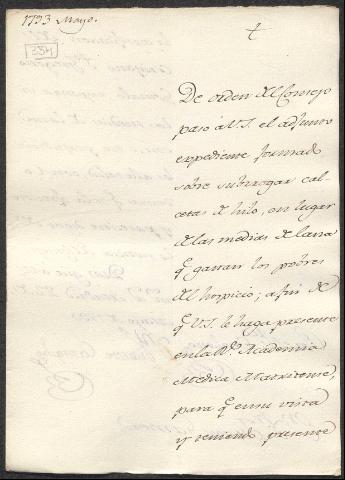 1793 Mayo.
254
De orden del Consejo
paso à V.S. el adjunto
expediente formado
sobre subrrogar cal-
cetas de hilo, en lugar
de las medias de lana
q.e gastan los pobres
del hospicio; a fin de
q.e V.S. le haga presente
en la R.l Academia
Medica Matritense,
para q.e en su vista
y teniendo presente